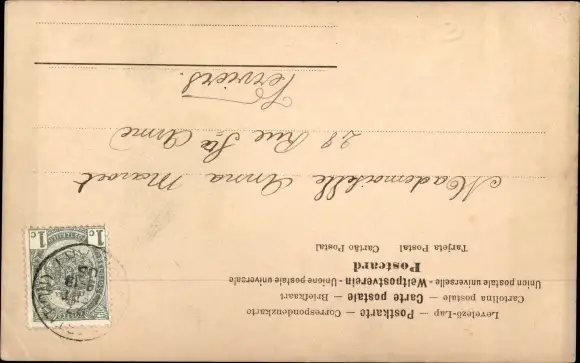 Levelező-Lap — Postkarte — Correspondenzkarte
Cartolina postale — Carte postale — Briefkaart
Union postale universelle - Weltpostverein - Unione postale universale
Postcard
Tarjeta Postal Cartão Postal
1c 1c
Mademoiselle Anna Maroet
28 Rue Ste Anne
Verviers.